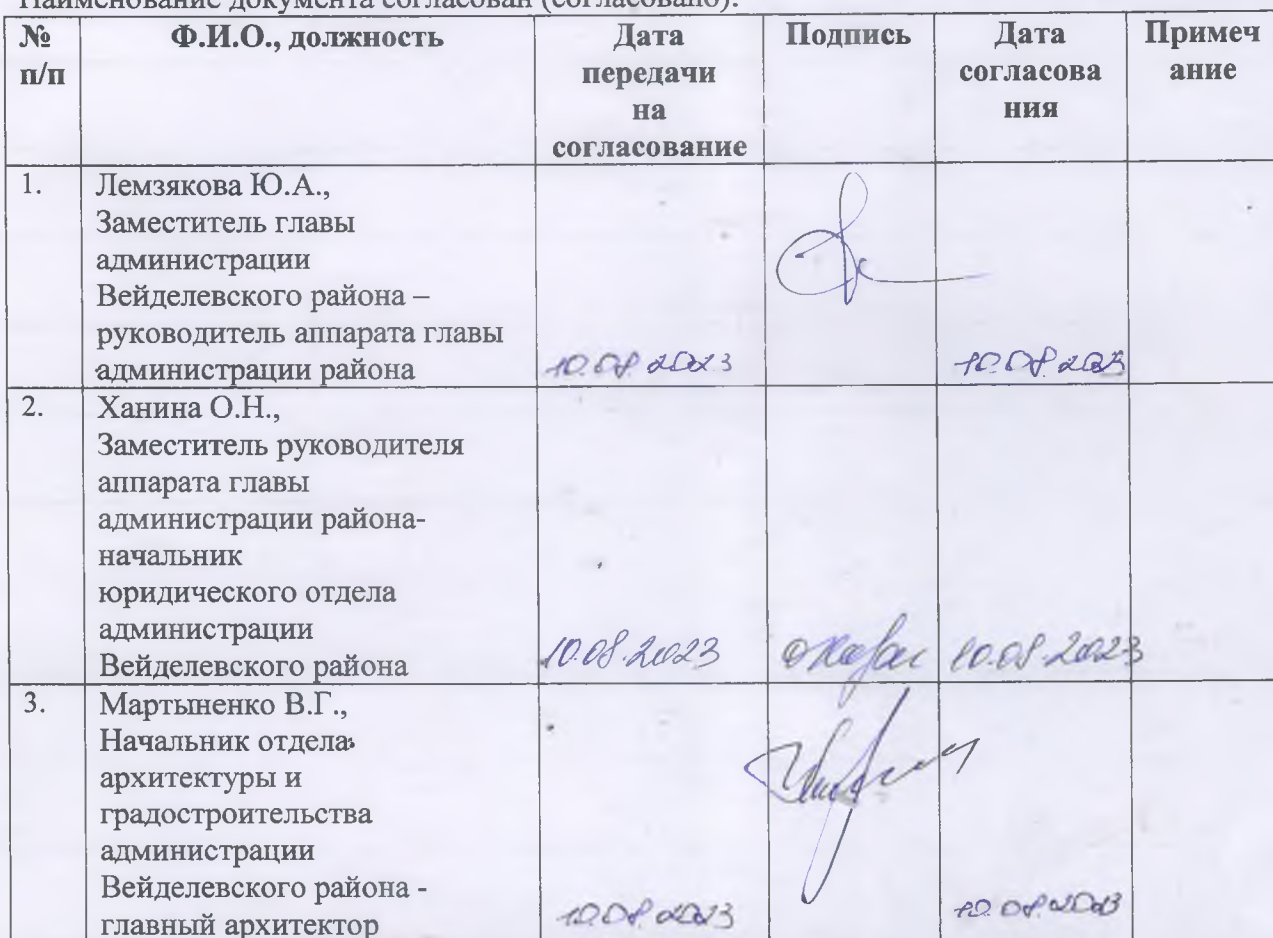 Наименование документа согласован (согласовано):
№ п/п Ф.И.О., должность Дата передачи на согласование Подпись Дата согласова ния Примеч ание
1. Лемзякова Ю.А.,
Заместитель главы
администрации
Вейделевского района –
руководитель аппарата главы
администрации района 10.08.2023 10.08.2023
2. Ханина О.Н.,
Заместитель руководителя
аппарата главы
администрации района-
начальник
юридического отдела
администрации
Вейделевского района 10.08.2023 10.08.2023
3. Мартыненко В.Г.,
Начальник отдела
архитектуры и
градостроительства
администрации
Вейделевского района -
главный архитектор 10.08.2023 10.08.2023